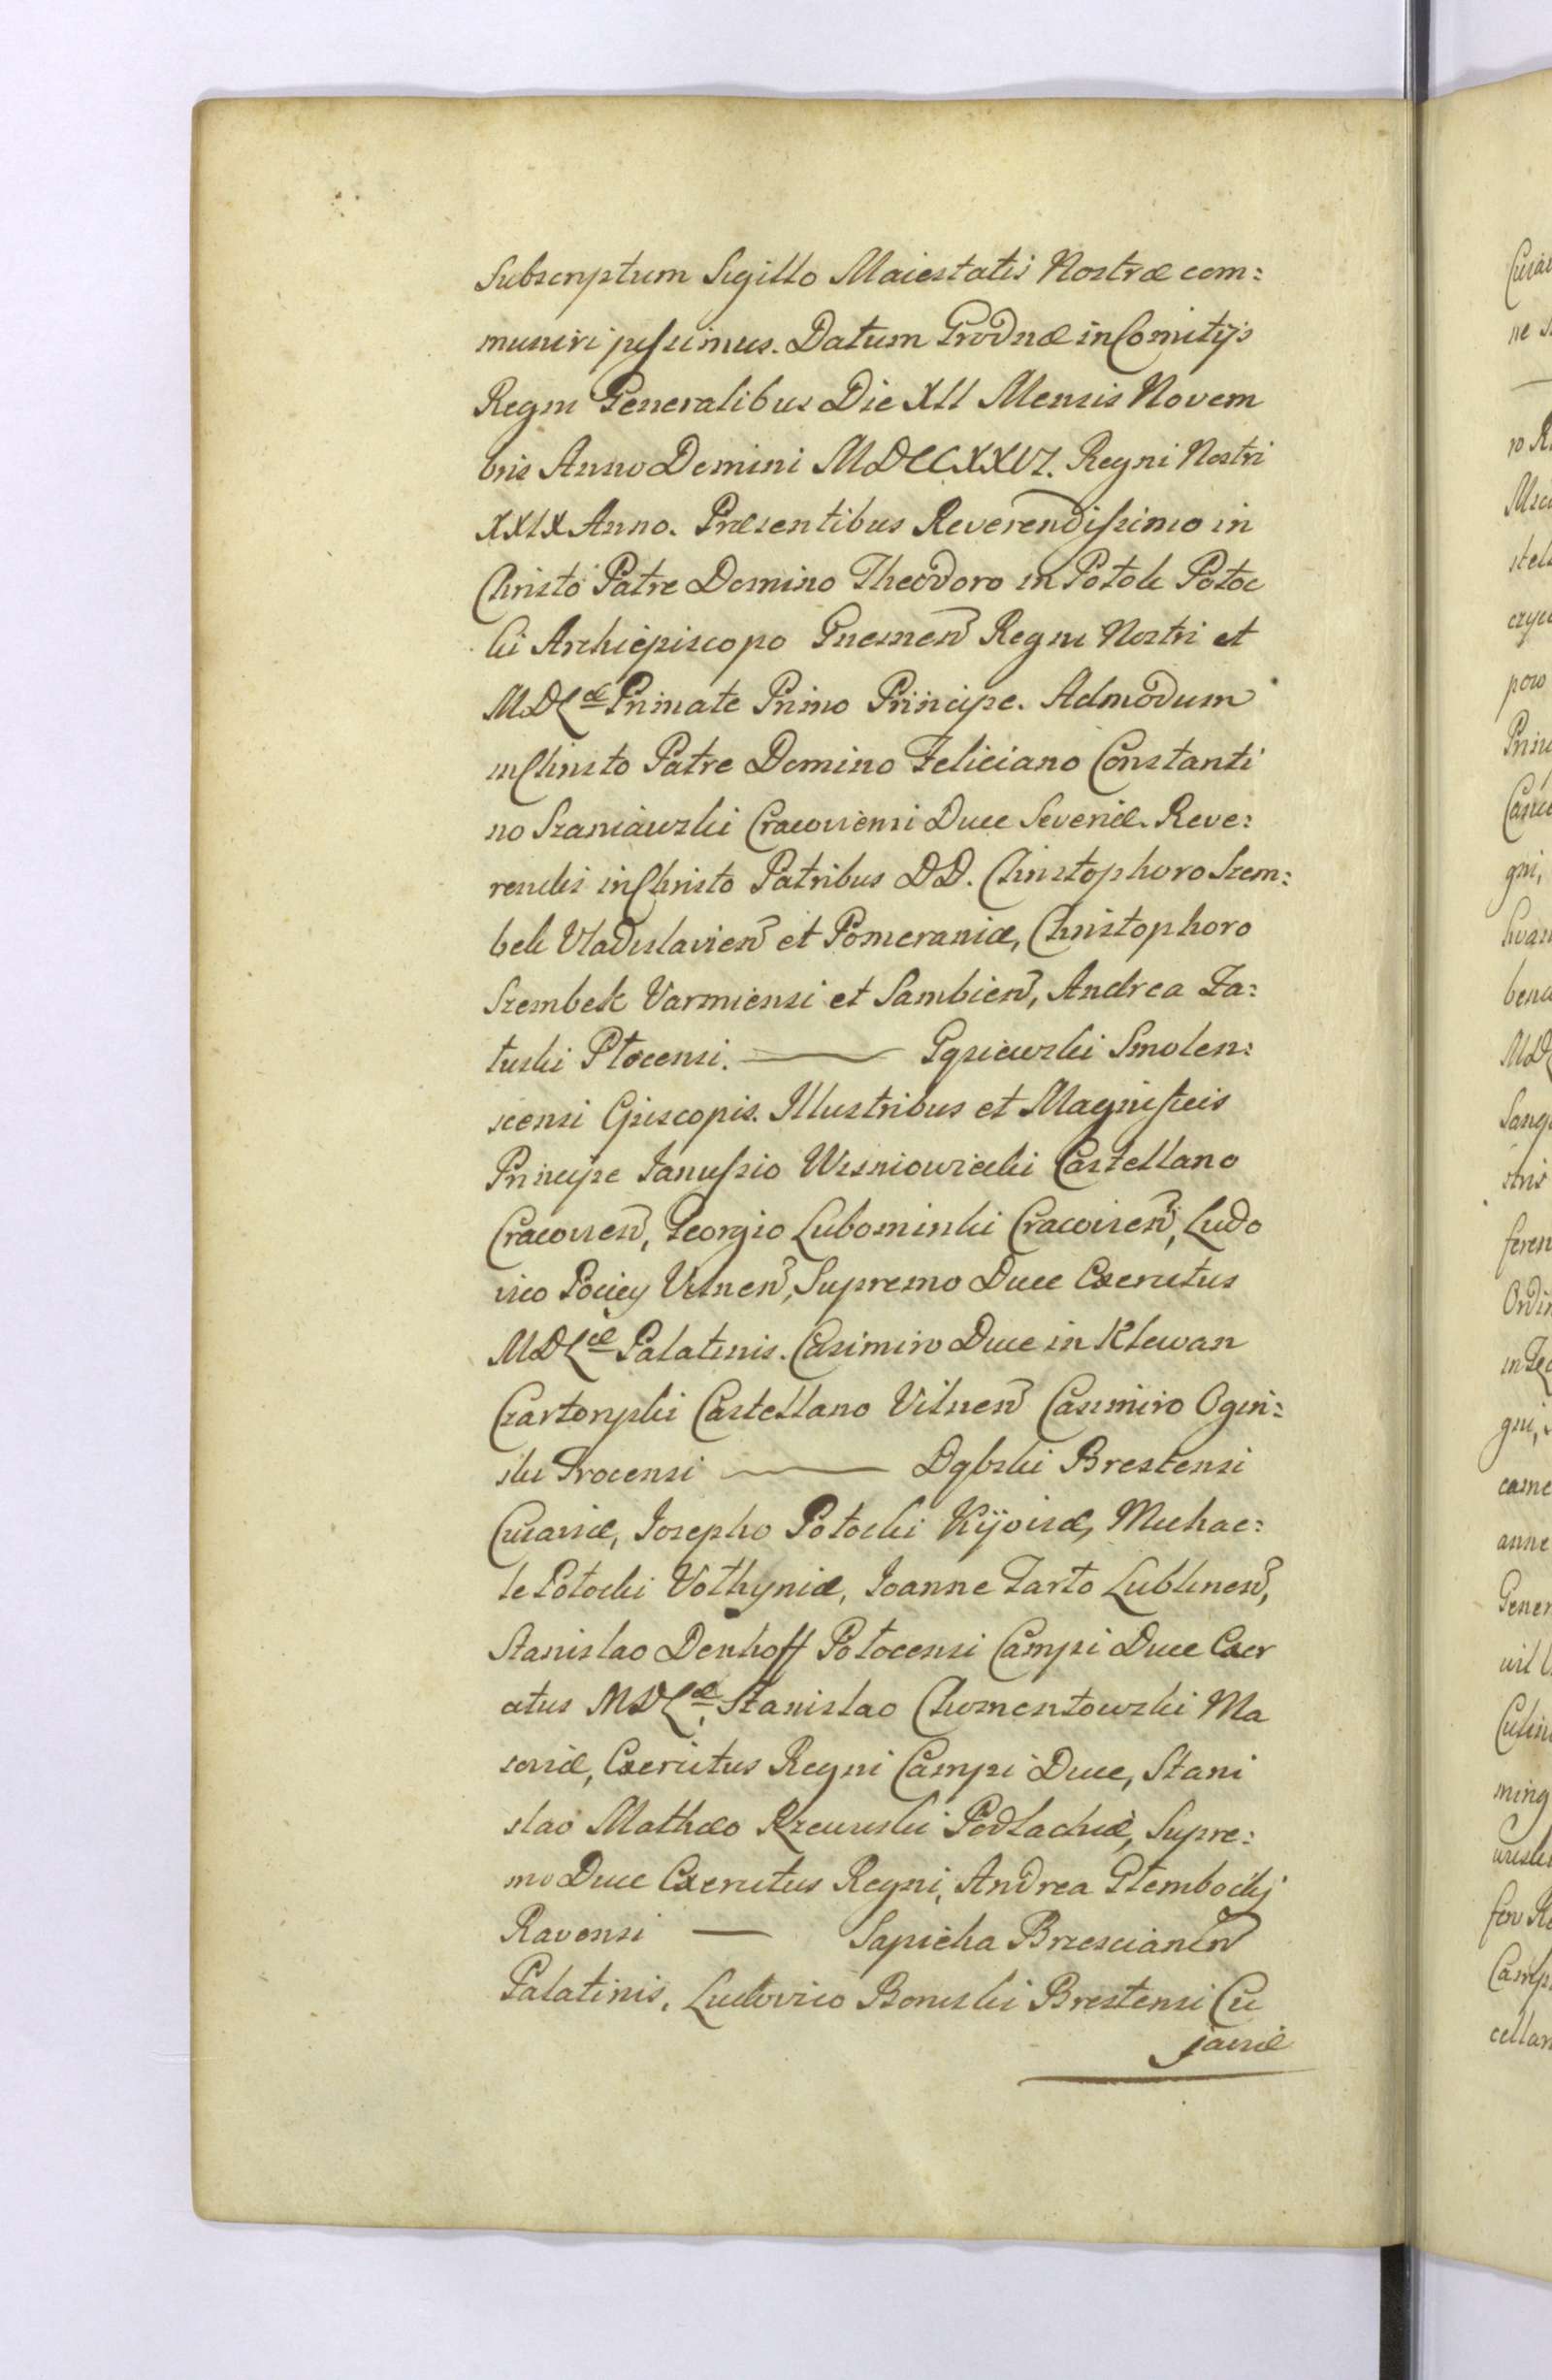 Subscriptum Sigillo Maiestatis Nostræ com:
muniri jussimus. Datum Grodnæ in Comitijs
Regni Generalibus Die XII Mensis Novem
bris Anno Domini MDCCXXVI. Regni Nostri
XXIX Anno. Præsentibus Reverendissimo in
Christo Patre Domino Theodoro in Potok Potoc
ki Archiepiscopo Gnesnen Regni Nostri et
MDLæ Primate Primo Principe. Admodum
in Christo Patre Domino Feliciano Constanti
no Szaniawski Cracoviensi Duce Severiæ. Reve:
rendis in Christo Patribus DD. Christophoro Szem:
bek Vladislavien et Pomeraniæ, Christophoro
Szembek Varmiensi et Sambien, Andrea Za:
luski Plocensi. — Gąsiewski Smolen:
scensi Episcopis. Illustribus et Magnificis
Principe Janussio Wisniowiecki Castellano
Cracovien, Georgio Lubomirski Cracovien, Ludo
vico Pociey Vilnen, Supremo Duce Exercitus
MDLæ Palatinis. Casimiro Duce in Klewan
Czartoryski Castellano Vilnen Casimiro Ogin:
ski Trocensi — Dąbski Brestensi
Cuiaviæ, Josepho Potocki Kijoviæ, Michae:
le Potocki Volhyniæ, Joanne Tarło Lublinen,
Stanislao Denhoff Polocensi Campi Duce Exer
citus MDLæ, Stanislao Chomentowski Ma
soviæ, Exercitus Regni Campi Duce, Stani
slao Mathæo Rzewuski Podlachiæ, Supre:
mo Duce Exercitus Regni, Andrea Glembocki
Ravensi — Sapieha Brzescianen
Palatinis. Ludovico Borucki Brestensi Cu
javiæ